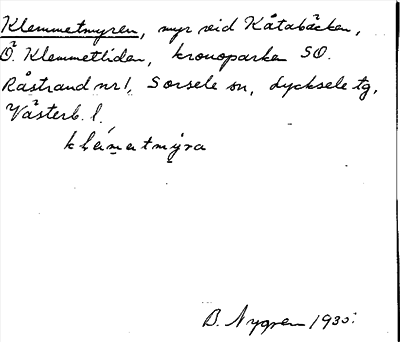 Klemmetmyren, myr vid Kåtabäcken,
Ö. Klemmetliden, kronoparken SO.
Råstrand nr 1, Sorsele sn, Lycksele tg,
Västerb. l.
klématmýra
B. Nygren 1930.